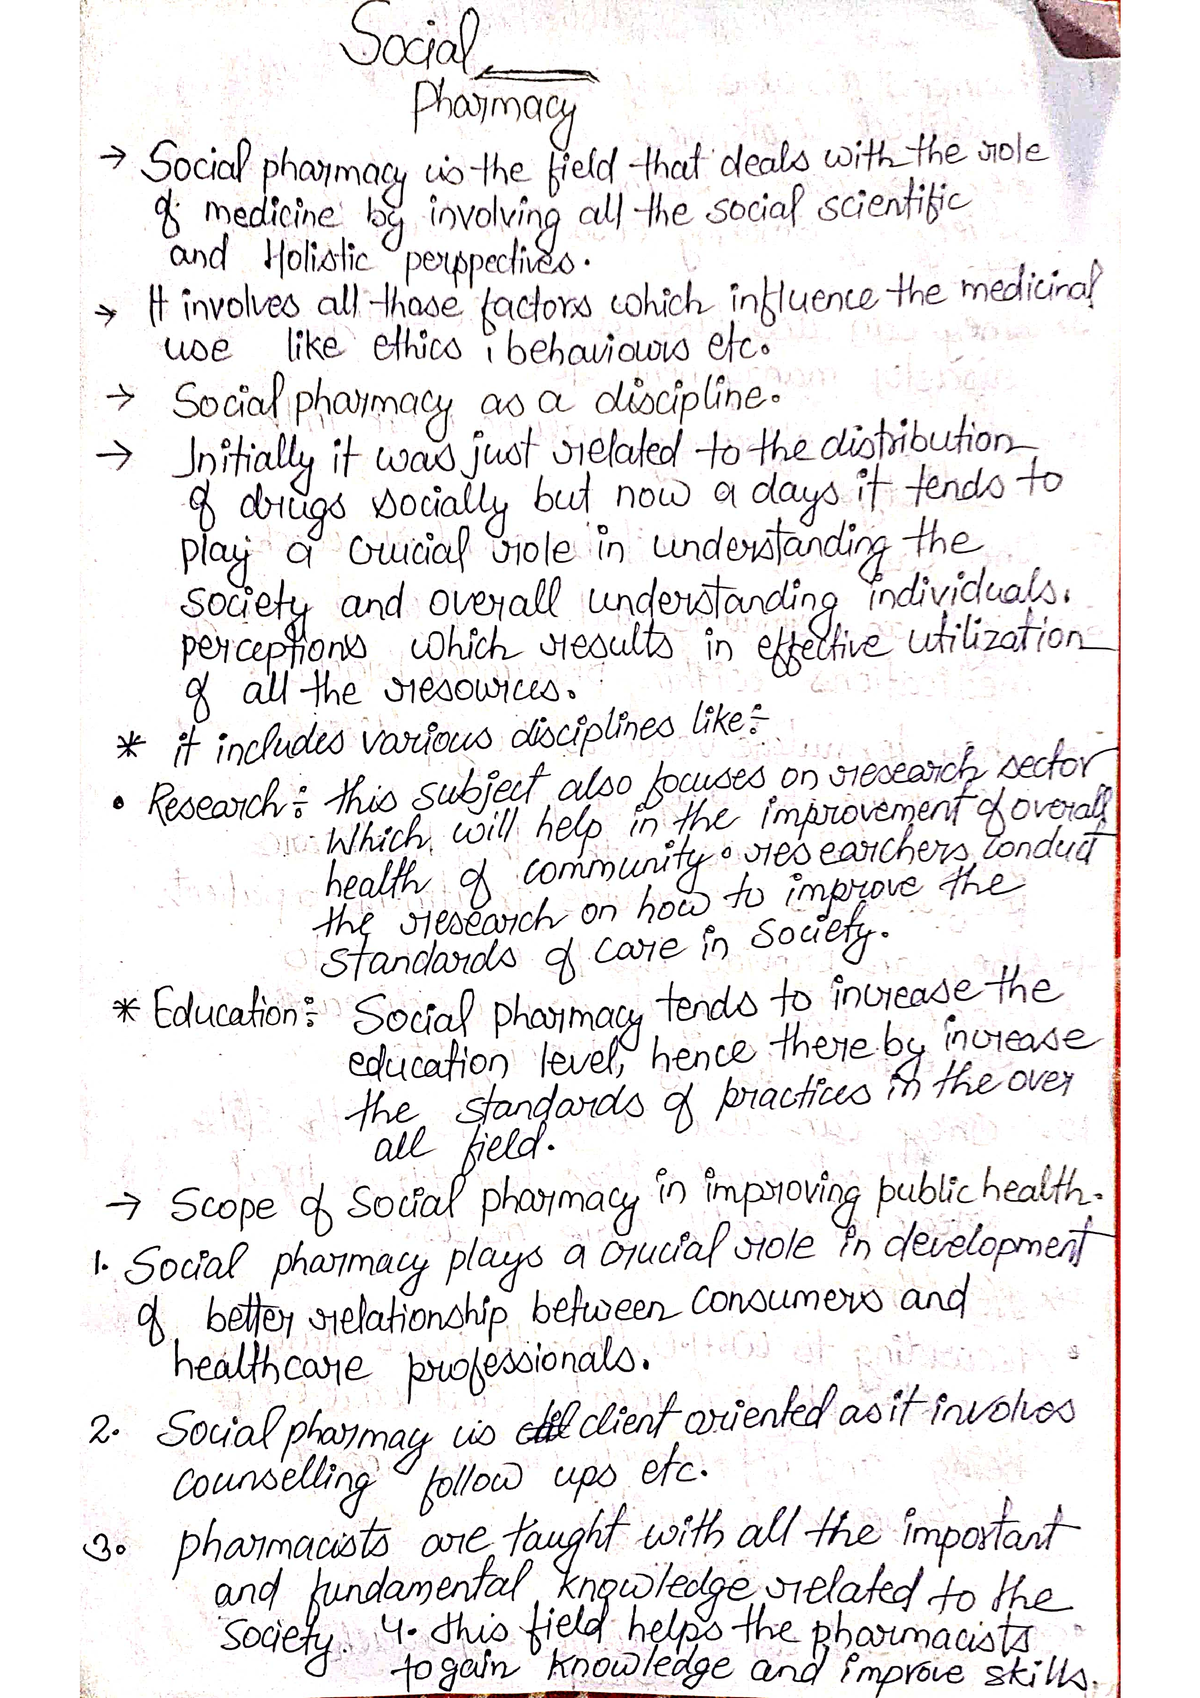 Social
Pharmacy
→ Social pharmacy is the field that deals with the role
of medicine by involving all the social scientific
and Holistic perppectives.
→ It involves all those factors which influence the medicinal
use like ethics, behaviours etc.
→ Social pharmacy as a discipline.
→ Initially it was just related to the distribution
of drugs socially but now a days it tends to
play a crucial role in understanding the
society and overall understanding individuals.
perceptions which results in effective utilization
of all the resources.
* it includes various disciplines like:-
• Research:- this subject also focuses on research sector
Which will help in the improvement of overall
health of community. researchers conduct
the research on how to improve the
standards of care in Society.
* Education:- Social pharmacy tends to increase the
education level, hence there by increase
the standards of practices in the over
all field.
→ Scope of Social pharmacy in improving public health.
1. Social pharmacy plays a crucial role in development
of better relationship between consumers and
healthcare professionals.
2. Social pharmay is client oriented as it involves
counselling follow ups etc.
3. pharmacists are taught with all the important
and fundamental knowledge related to the
Society. 4. this field helps the pharmacists
to gain knowledge and improve skills.